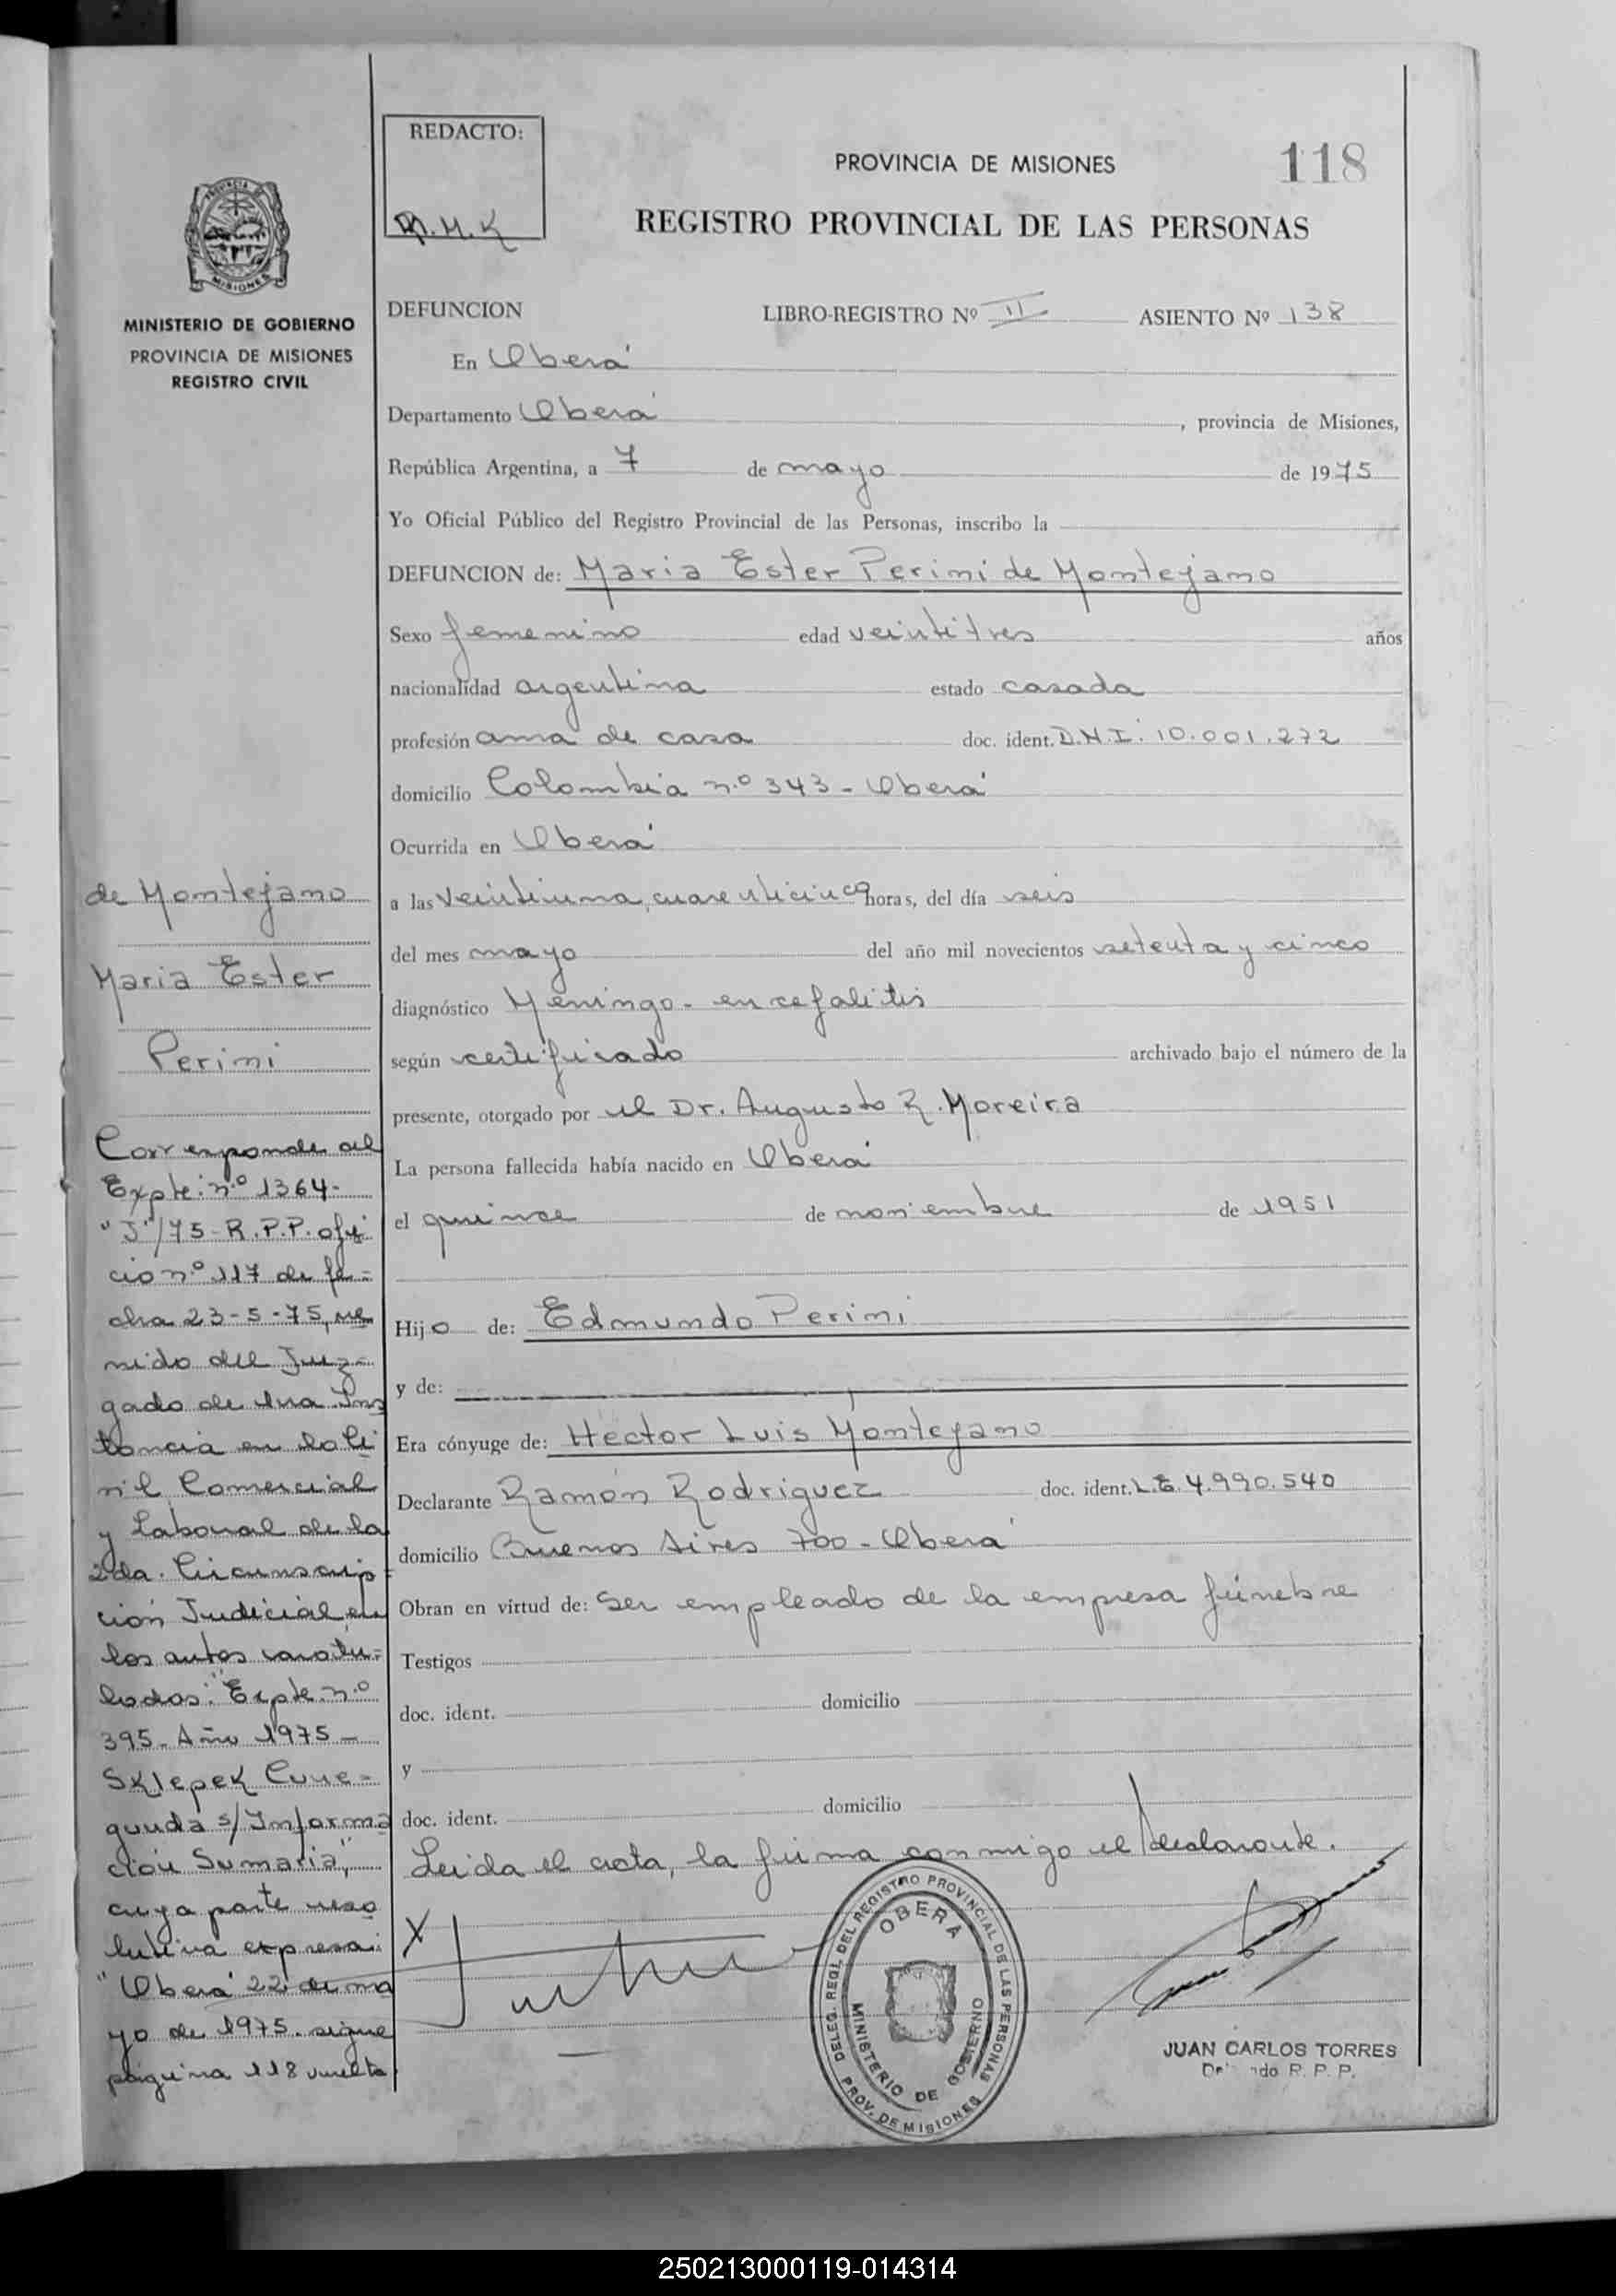 REDACTO:
M.K
PROVINCIA DE MISIONES
118
REGISTRO PROVINCIAL DE LAS PERSONAS
PROVINCIA DE
MISIONES
MINISTERIO DE GOBIERNO
PROVINCIA DE MISIONES
REGISTRO CIVIL
DEFUNCION LIBRO-REGISTRO Nº II ASIENTO Nº 138
En Oberá
Departamento Oberá, provincia de Misiones,
República Argentina, a 7 de mayo de 1975
Yo Oficial Público del Registro Provincial de las Personas, inscribo la
DEFUNCION de: Maria Ester Perini de Montejano
Sexo femenino edad veintitres años
nacionalidad argentina estado casada
profesión ama de casa doc. ident. D.N.I. 10.001.272
domicilio Colombia n.º 343 - Oberá
Ocurrida en Oberá
a las veintiuna, cuarenticinco horas, del día seis
del mes mayo del año mil novecientos setenta y cinco
diagnóstico Meningo-encefalitis
según certificado archivado bajo el número de la
presente, otorgado por el Dr. Augusto R. Moreira
La persona fallecida había nacido en Oberá
el quince de noviembre de 1951
Hijo de: Edmundo Perini
y de:
Era cónyuge de: Hector Luis Montejano
Declarante Ramón Rodriguez doc. ident. L.E. 4.990.540
domicilio Buenos Aires 700 - Oberá
Obran en virtud de: Ser empleado de la empresa fúnebre
Testigos
doc. ident. domicilio
y
doc. ident. domicilio
Leida el acta, la firma conmigo el declarante.
X
de Montejano
Maria Ester
Perini
Corresponde al
Expte. n.º 1364-
"J"/75-R.P.P. ofi
cio n.º 117 de fe=
cha 23-5-75, ve
nido del Juz=
gado de 1ra Ins
tancia en lo Ci
vil Comercial
y Laboral de la
2da. Circunscrip=
ción Judicial en
los autos caratu=
lados: "Expte. n.º
395. Año 1975-
Sklepek Cune=
gunda s/Informa
ción Sumaria",
cuya parte reso
lutiva expresa:
"Oberá 22 de ma
yo de 1975. sigue
página 118 vuelta
DELEG. REGI. DEL REGISTRO PROVINCIAL DE LAS PERSONAS
OBERA
MINISTERIO DE GOBIERNO
PROV. DE MISIONES
JUAN CARLOS TORRES
R. P. P.
250213000119-014314